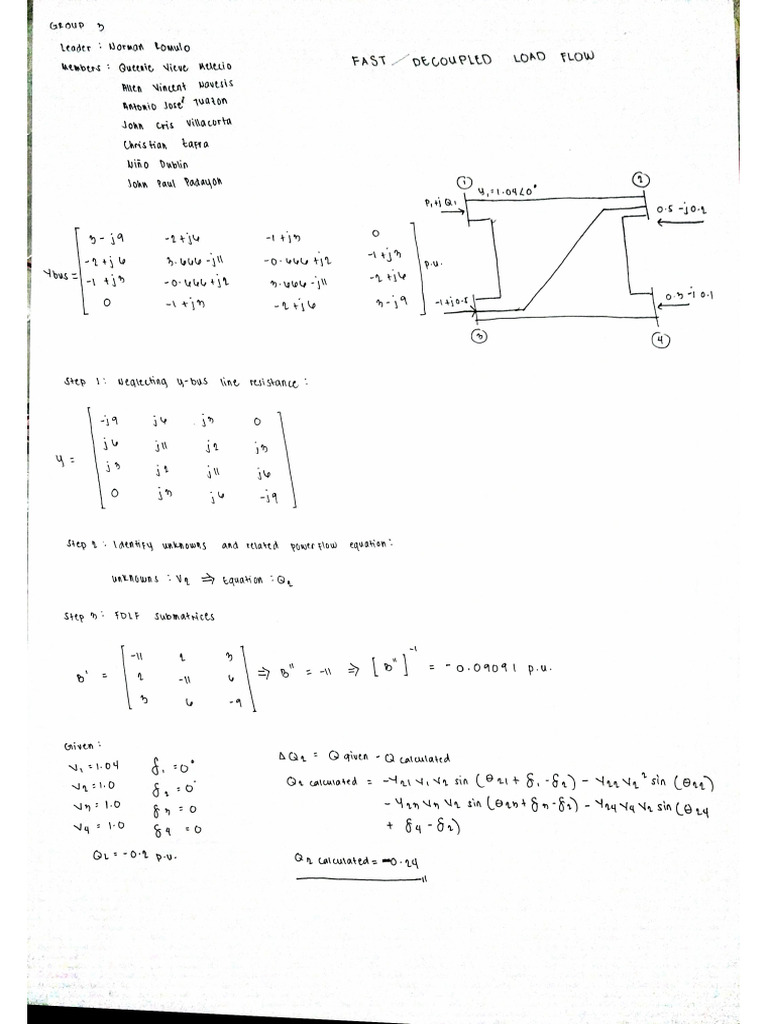 GROUP 3
Leader : Norman Romulo
Members : Queenie Vieve Melecio
Allen Vincent Navesis
Antonio Jose Tuazon
John Cris Villacorta
Christian
Niño Dublin
John Paul Padayon
FAST / DECOUPLED LOAD FLOW
Ybus = [ 3-j9 -2+j6 -1+j3 0
-2+j6 3.666-j11 -0.666+j2 -1+j3
-1+j3 -0.666+j2 3.666-j11 -2+j6
0 -1+j3 -2+j6 3-j9 ] p.u.
① V1=1.04∠0° ②
P1+jQ1
0.5-j0.2
-1+j0.5
0.3-j0.1
③ ④
Step 1: Neglecting y-bus line resistance :
Y = [ -j9 j6 j3 0
j6 j11 j2 j3
j3 j2 j11 j6
0 j3 j6 -j9 ]
Step 2: Identify unknowns and related power flow equation:
unknowns : V2 ⇒ Equation : Q2
Step 3: FDLF submatrices
B' = [ -11 2 3
2 -11 6
3 6 -9 ] ⇒ B'' = -11 ⇒ [B'']⁻¹ = -0.09091 p.u.
Given :
V1 = 1.04 δ1 = 0°
V2 = 1.0 δ2 = 0°
V3 = 1.0 δ3 = 0
V4 = 1.0 δ4 = 0
Q2 = -0.2 p.u.
ΔQ2 = Q given - Q calculated
Q2 calculated = -Y21 V1 V2 sin (θ21 + δ1 - δ2) - Y22 V2² sin (θ22)
- Y23 V3 V2 sin (θ23 + δ3 - δ2) - Y24 V4 V2 sin (θ24
+ δ4 - δ2)
Q2 calculated = -0.24